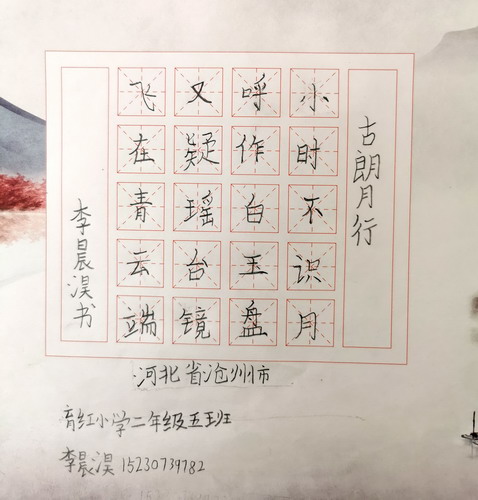 古朗月行
小时不识月
呼作白玉盘
又疑瑶台镜
飞在青云端
李晨淏书
河北省沧州市
育红小学二年级五班
李晨淏 15230739782